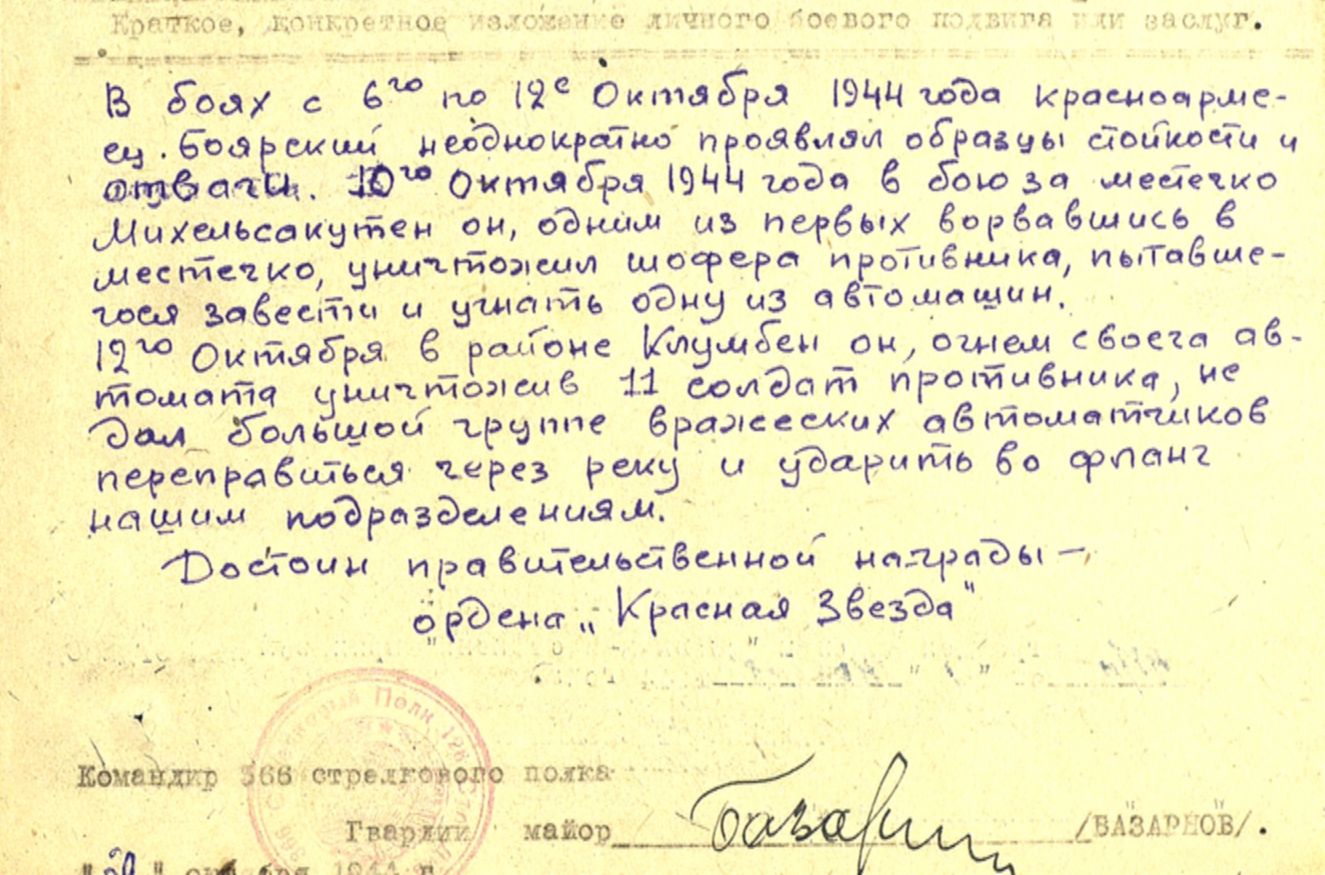 Краткое, конкретное изложение личного боевого подвига или заслуг.
В боях с 6го по 12е Октября 1944 года красноарме-
ец. Боярский неоднократно проявлял образцы стойкости и
отваги. 10го Октября 1944 года в бою за местечко
Михельсакутен он, одним из первых ворвавшись в
местечко, уничтожил шофера противника, пытавше-
гося завести и угнать одну из автомашин.
12го Октября в районе Клумбен он, огнем своего ав-
томата уничтожив 11 солдат противника, не
дал большой группе вражеских автоматчиков
переправиться через реку и ударить во фланг
нашим подразделениям.
Достоин правительственной награды –
ордена „Красная Звезда"
Командир 366 стрелкового полка
Гвардии майор Базарнов /БАЗАРНОВ/.
октября 1944 г.